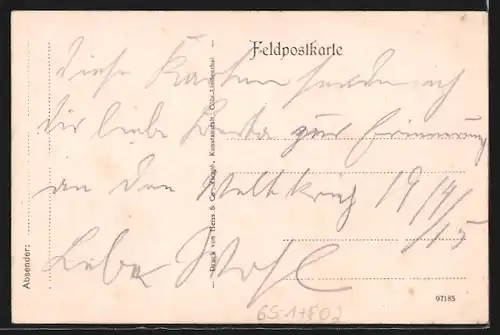 Feldpostkarte
Diese Karten sende ich
Dir liebe zur Erinnerung
an den Weltkrieg 1914/
/15
Lebe Wohl
Absender:
Druck von Heiss & Co. Kunstanstalt, Cöln-Lindenthal
97185